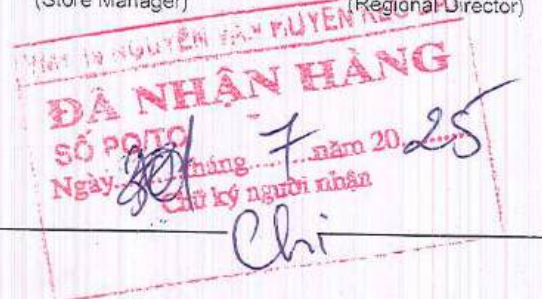 (Store Manager) (Regional Director)
NGUYỄN
ĐÃ NHẬN HÀNG
SỐ PO/TO
Ngày 30 tháng 7 năm 2025
Chữ ký người nhận
Chi